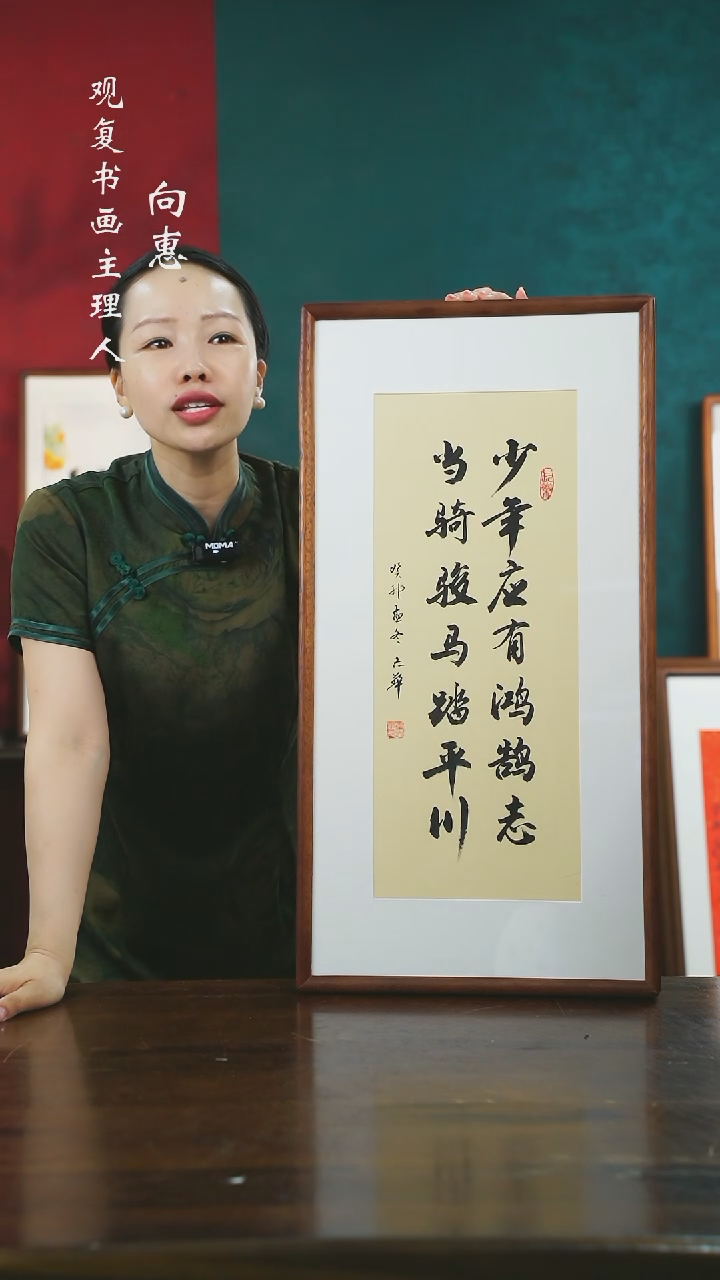 观复书画主理人
向惠
少年应有鸿鹄志
当骑骏马踏平川
癸卯
MOMA